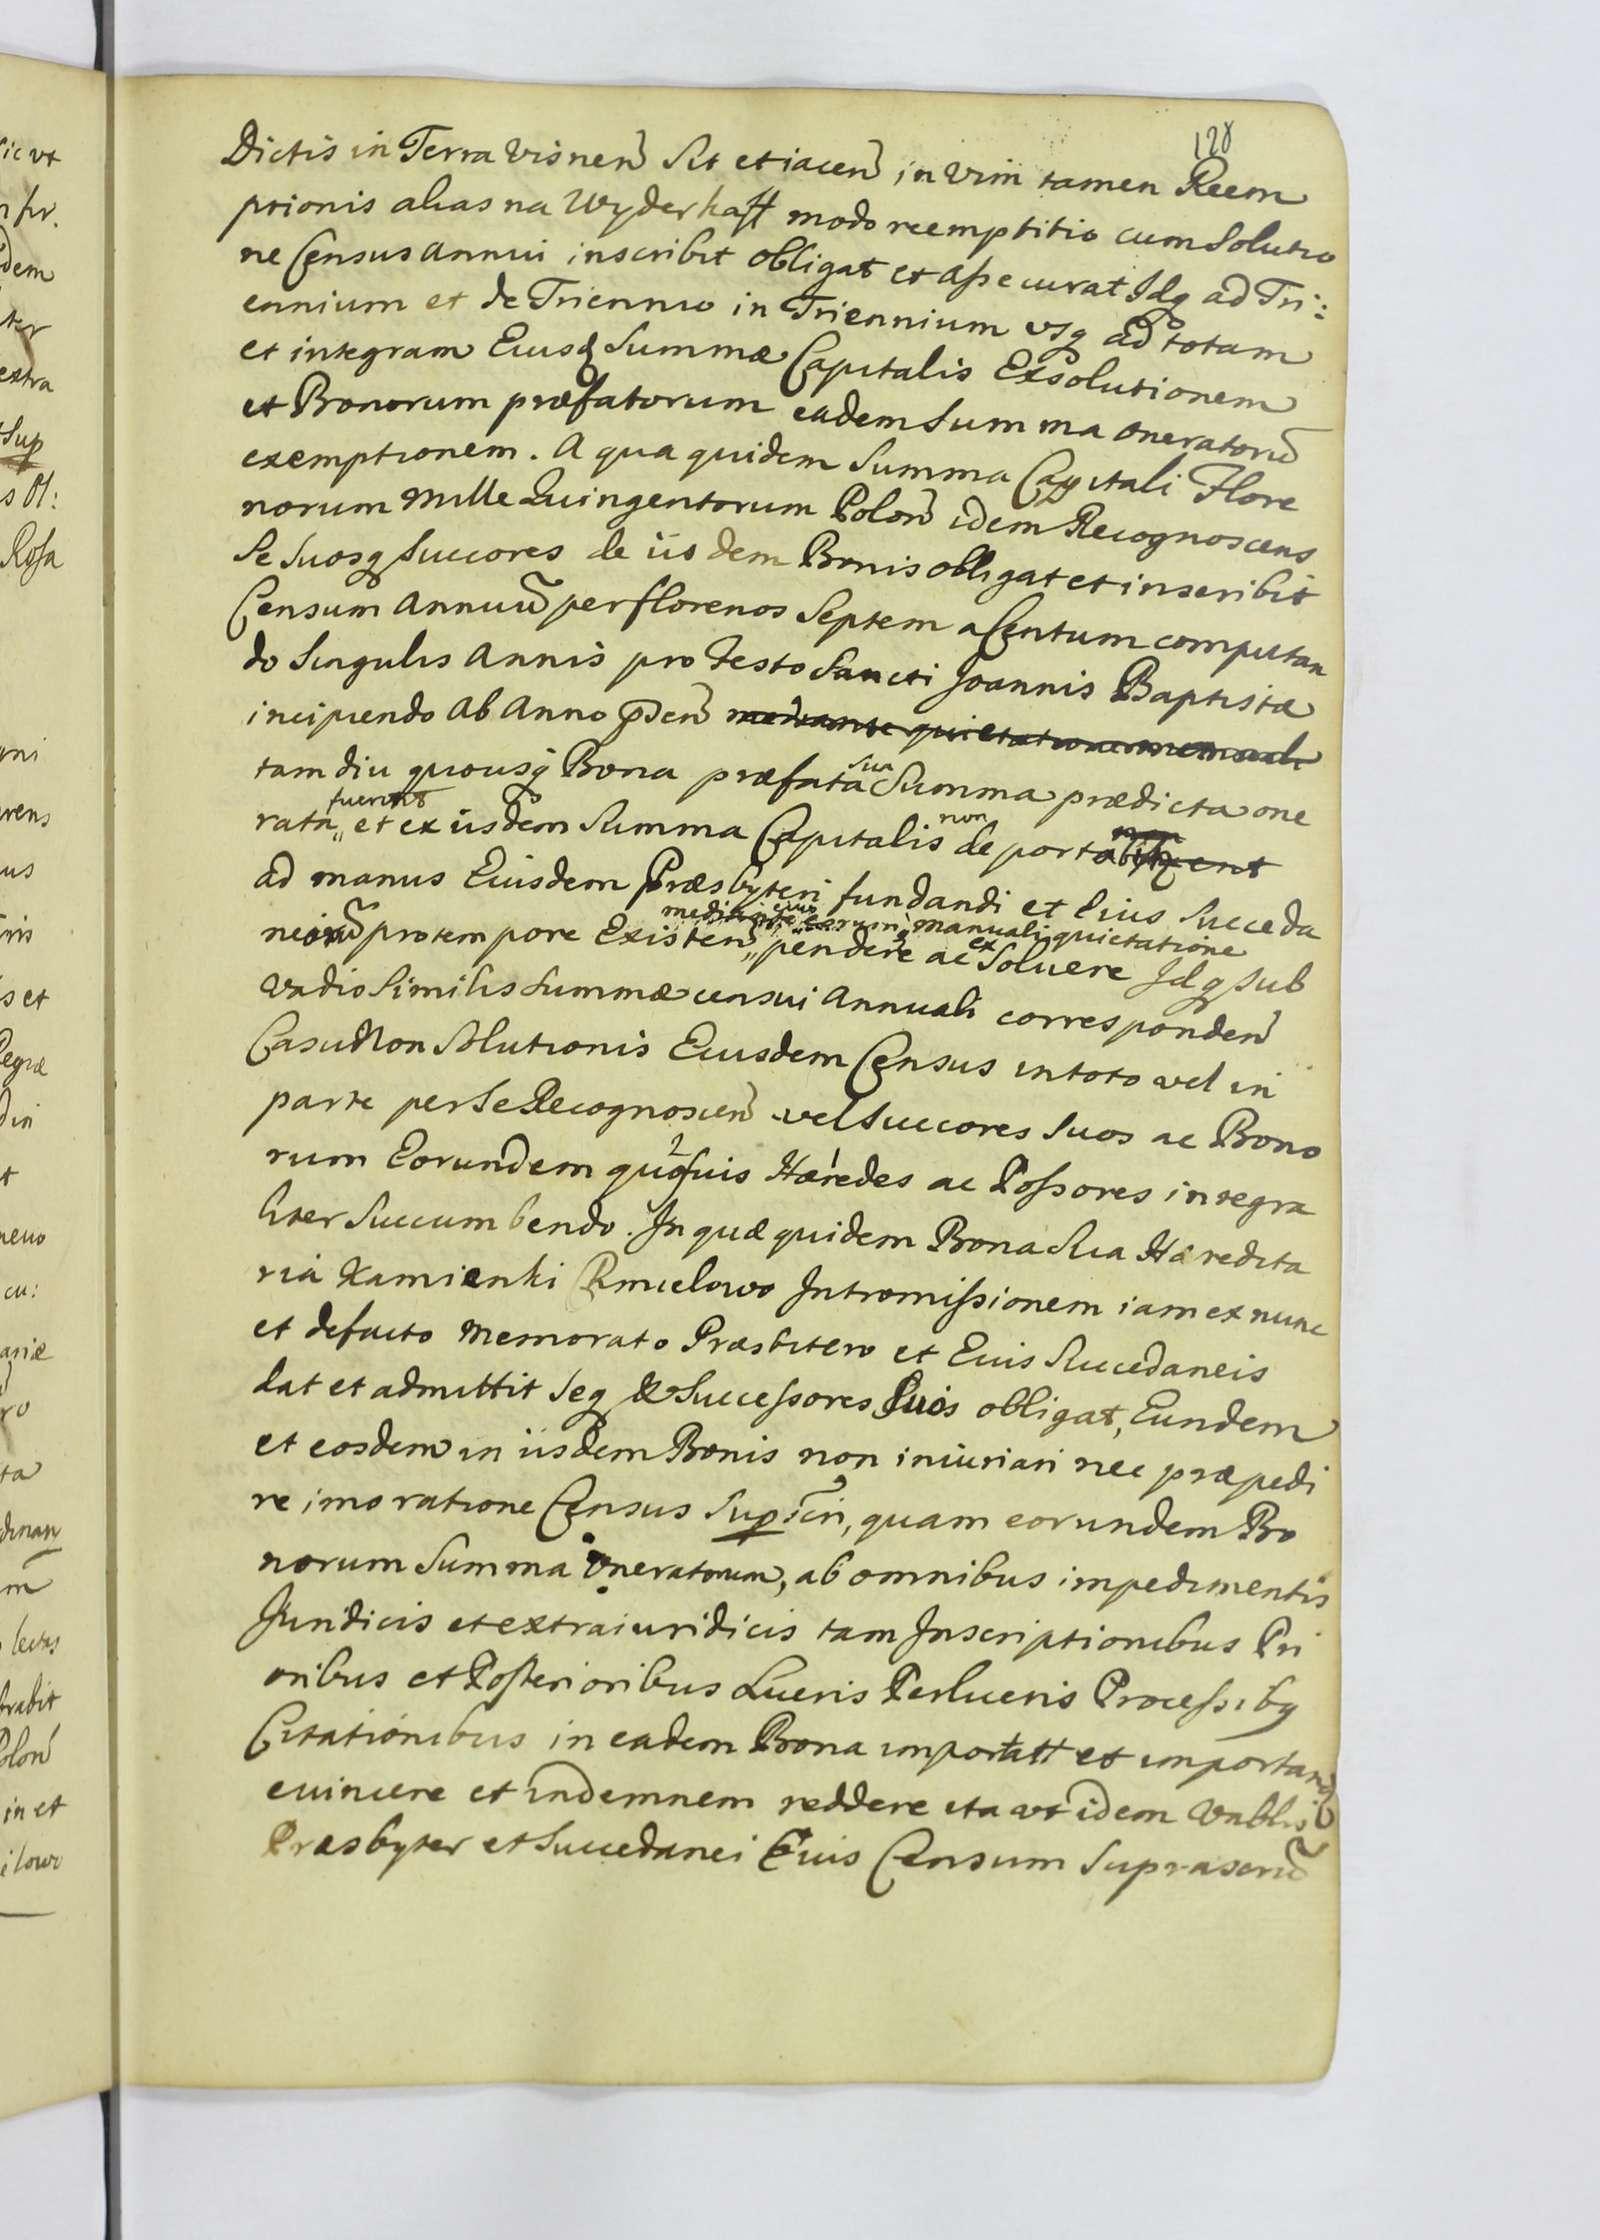 128
Dictis in Terra Visnen̄ Sit et iacen̄ in Vim tamen Reem
ptionis alias na Wyderkaff modo reemptitio cum Solutio
ne Census Annui inscribit obligat et assecurat Idq ad Tri:
ennium et de Triennio in Triennium vsq ad totam
et integram Eiusd Summæ Capitalis Exsolutionem
et Bonorum præfatorum eadem Summa Oneratorū
exemptionem. A qua quidem Summa Capitali Flore
norum Mille Quingentorum Polon̄ idem Recognoscens
Se Suosq Succores de iisdem Bonis obligat et inscribit
Censum Annuū per florenos Septem a Centum computan
do Singulis Annis pro Festo Sancti Joannis Baptistæ
incipiendo Ab Anno p̄den̄ mediante quietatione manuali
tam diu quousq Bona præfata sua Summa prædicta one
rata fuerint et ex iisdem Summa Capitalis non de port
ad manus Eiusdem Præsbyteri fundandi et Eius Succeda
mediante eius eorum manuali quietatione
neorū pro tempore Existen̄ pendere ac exSoluere Idq sub
vadio Similis Summæ censui Annuali corresponden̄
Casu Non Solutionis Eiusdem Census in toto vel in
parte per Se Recognoscen̄ vel Succores Suos ac Bono
rum Eorundem quosuis Hæredes ac Possores integra
liter Succumbendo. In quæ quidem Bona Sua Hæredita
ria Kamienki Chmielowo Intromissionem iam ex nunc
et defacto Memorato Præsbitero et Eius Succedaneis
dat et admittit Seq & Successores Suos obligat, Eundem
et eosdem in iisdem Bonis non iniuriari nec præpedi
re imo ratione Census Sup̄scri, quam eorundem Bo
norum Summa Oneratorum, ab omnibus impedimentis
Juridicis et extraiuridicis tam Inscriptionibus Pri
oribus et Posterioribus Lucris Perlucris Processibq
Citationibus in eadem Bona importatt et importand
euincere et indemnem reddere ita vt idem Vnblis
Præsbyter et Succedanei Eius Censum Suprascriū